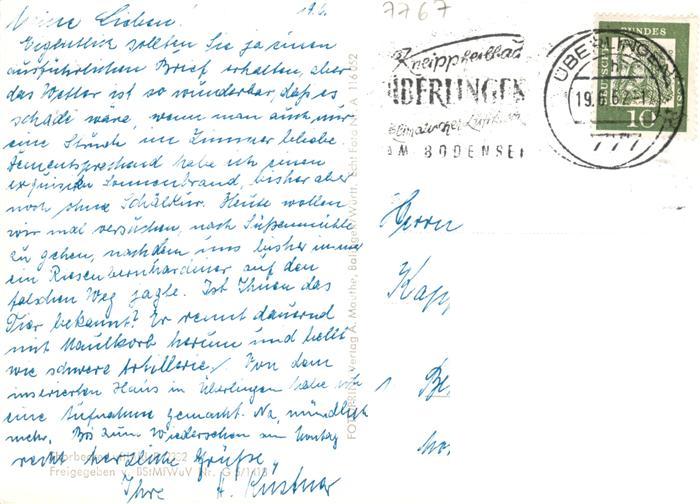 Meine Lieben! 19.6.
Eigentlich sollten Sie ja einen
ausführlichen Brief erhalten, aber
das Wetter ist so wunderbar, daß es
schade wäre, wenn man auch nur
eine Stunde im Zimmer bliebe.
Dementsprechend habe ich einen
exquisiten Sonnenbrand, bisher aber
noch ohne Schälkur. Heute wollen
wir mal versuchen, nach Süßenmühle
zu gehen, nachdem uns bisher immer
ein Riesenbernhardiner auf den
falschen Weg jagte. Ist Ihnen das
Tier bekannt? Er rennt dauernd
mit Maulkorb herum und bellt
wie schwere Artillerie. Von dem
inserierten Haus in Überlingen habe ich
eine Aufnahme gemacht. Na, mündlich
mehr. Bis zum Wiedersehen am
recht herzliche Grüße
Ihre
7767
Kneippheilbad
ÜBERLINGEN
AM BODENSEE
ÜBERLINGEN
19.6.62
777
BUNDES
10
Herrn
Kapp
Be
Verlag A. Mauthe, Württ.
Freigegeben v. BStMfWuV Nr. G